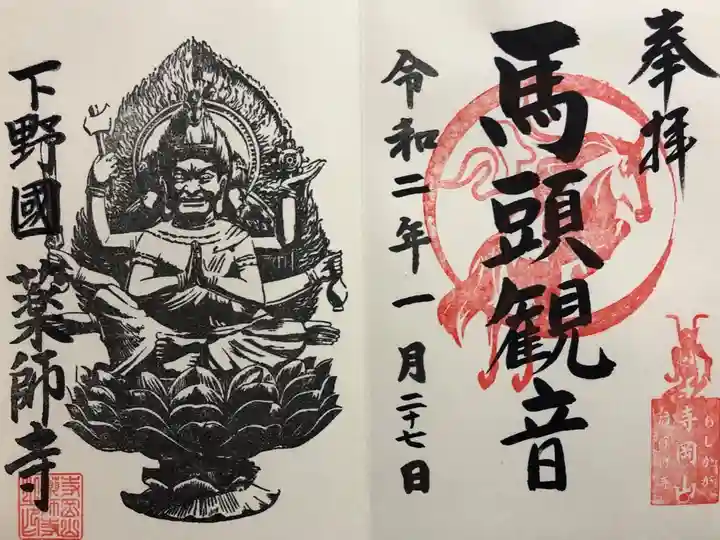 奉拝
馬頭観音
令和二年一月二十七日
寺岡山
あしかが
下野國 薬師寺